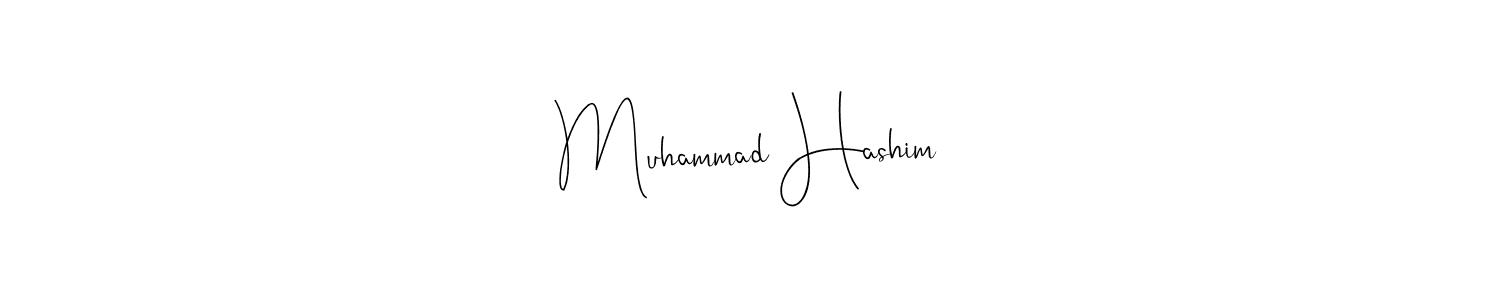 Muhammad Hashim